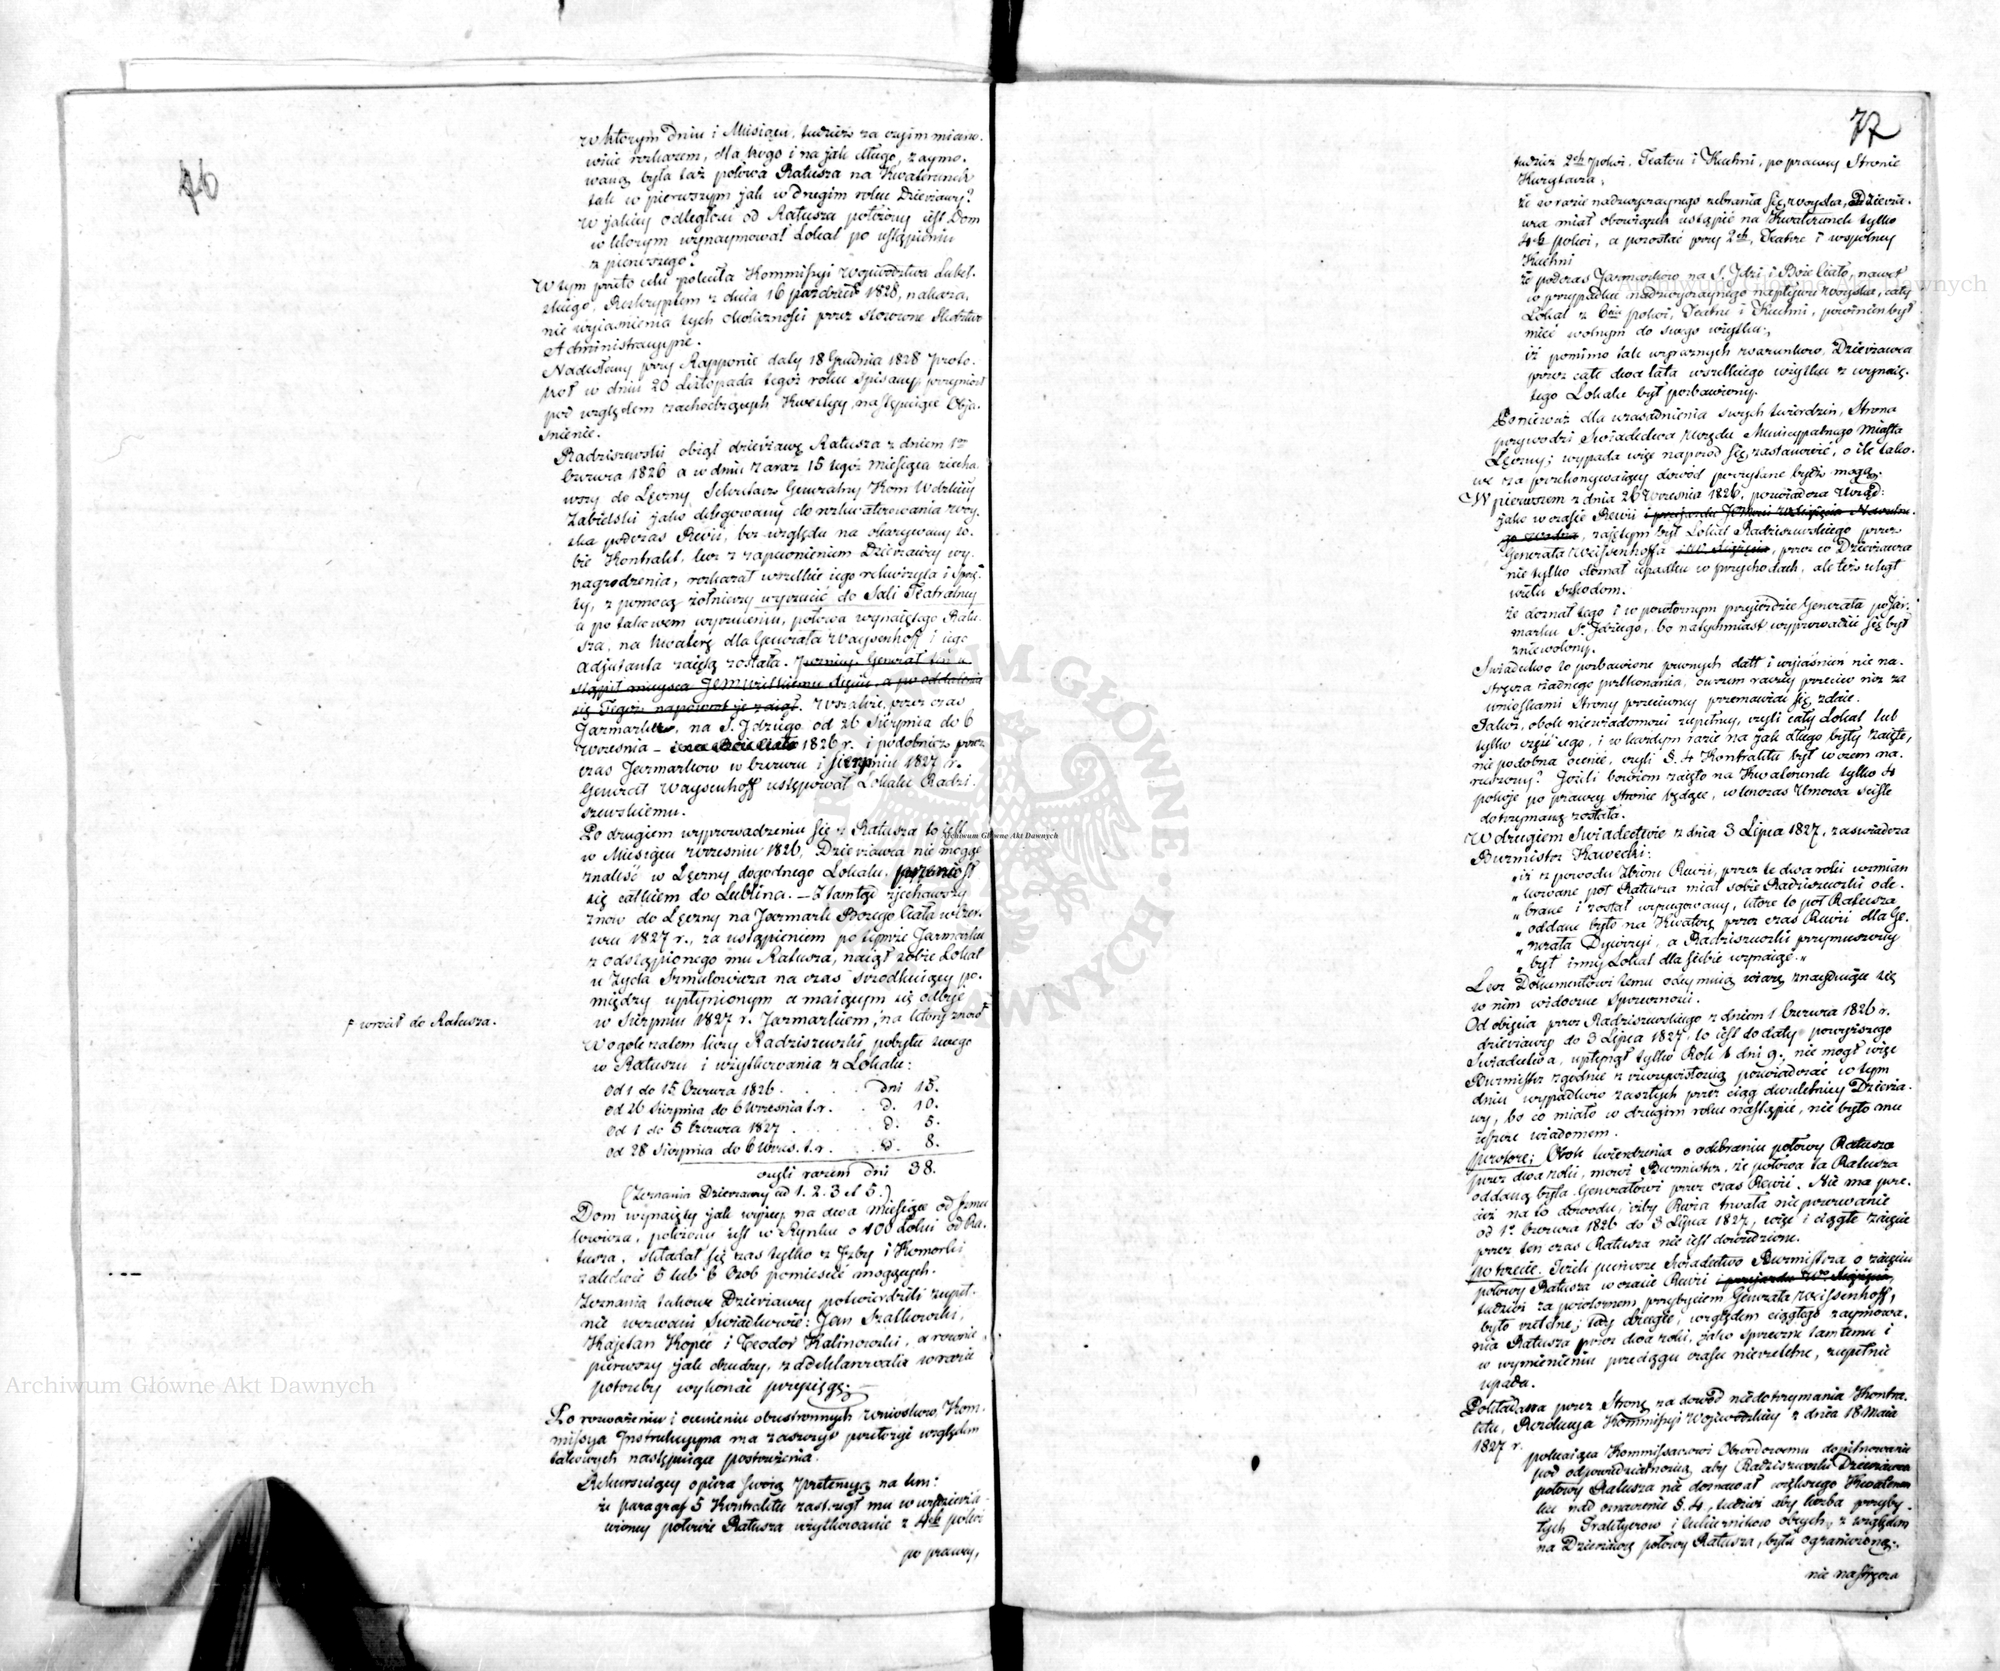 76
w którym Dniu i Miesiącu, tudzież za czyim miano-
wicie rozkazem, dla kogo i na jak długo, zaymo-
waną była taż połowa Ratusza na Kwaterunek
tak w pierwszym jak w drugim roku Dzierżawy?
W jakiey odległości od Ratusza położony iest Dom
w którym wynaymował Lokal po ustąpieniu
z pierwszego?
W tym przeto celu poleciła Kommissyi Województwa Lubel-
skiego, Reskryptem z dnia 16 paździer 1828, nakaza-
nie wyiaśnienia tych okoliczności przez słowowne Śledztwo
Administracyjne.
Nadesłany przy Rapporcie daty 18 Grudnia 1828 Proto-
kół w dniu 20 Listopada tegoż roku spisany, przyniósł
pod względem zachodzących Kwestyy, następuiące Obja-
śnienie.
Radziszewski obiął dzierżawę Ratusza z dniem 1m
Czerwca 1826 a w dniu zaraz 15 tegoż miesiąca ziecha-
wszy do Łęczny Sekretarz Generalny Kom Wdzkiey
Zabielski jako delegowany do rozkwaterowania woy-
ska podczas Rewii, bez względu na okazywany so-
bie Kontrakt, lecz z zapewnieniem Dzierżawcy wy-
nagrodzenia, rozkazał wszelkie iego rekwizyta i Sprzę-
ty, z pomocą żołnierzy wyrzucić do Sali Teatralney
a po takowem wyrzuceniu, połowa wynaiętego Ratu-
sza, na Kwaterę dla Generała Waysenhoff i iego
Adjutanta zaiętą została. Poczem Generał ten u-
stąpił mieysca Jemu Xięciu, a po oddaleniu
się Tegoż napowrót je zaiął. Wszakże, przez czas
Jarmarku, na S. Jdziego od 26 Sierpnia do 6
Września – i na Boże Ciało 1826 r. i podobnież przez
czas Jarmarków w Czerwcu i Sierpniu 1827 r.
Generał Waysenhoff ustępował Lokalu Radzi-
szewskiemu.
Po drugiem wyprowadzeniu się z Ratusza to iest
w Miesiącu wrześniu 1826, Dzierżawca nie mogąc
znaleść w Łęczny dogodnego Lokalu, przeniósł
się całkiem do Lublina. – Ztamtąd zjechawszy
znów do Łęczny na Jarmark Bożego Ciała w Czer-
wcu 1827 r., za ustąpieniem po tymże Jarmarku
z odstąpionego mu Ratusza, naiął sobie Lokal
u Zyda Szmulowicza na czas środkuiący po-
między upłynionym a maiącym się odbyć
w Sierpniu 1827 r. Jarmarkiem, na który znowu
F wrócił do Ratusza.
W ogóle zatem liczy Radziszewski pobytu swego
w Ratuszu i użytkowania z Lokalu:
Od 1 do 15 Czerwca 1826 . . . . dni 15.
od 26 Sierpnia do 6 Września t. r. . d. 10.
od 1 do 5 Czerwca 1827 . . . . d. 5.
od 28 Sierpnia do 6 Wrześ. t. r. . . d. 8.
czyli razem dni 38.
(Zeznania Dzierżawcy ad 1. 2. 3 et 5.)
Dom wynaięty jak wyżey na dwa miesiące od Szmu-
lowicza, położony iest w Rynku o 100 Łokci od Ra-
tusza, składał się zaś tylko z Jzby i Komorki
zaledwie 5 lub 6 Osób pomieścić mogących.
Zeznania takowe Dzierżawcy potwierdzili zupeł-
nie wezwani Świadkowie: Jan Szalkowski,
Kajetan Kopeć i Teodor Kalinowski, a równie
pierwszy jak drudzy, zadeklarowali w razie
potrzeby wykonać przysięgę.
Po rozważeniu i ocenieniu obustronnych wniosków, Kom-
missya Instrukcyjna ma zaszczyt przełożyć względem
takowych następuiące postrzeżenia.
Rekursuiący opiera swoią pretensyą na tem:
że paragraf 5 Kontraktu zastrzegł mu w wydzierża-
wioney połowie Ratusza użytkowanie z 4ch pokoi
po prawey,
77
tudzież 2ch pokoi, Teatru i Kuchni, po prawey Stronie
Kurytarza,
że w razie nadzwyczaynego zebrania się woyska, Dzierża-
wca miał obowiązek ustąpić na Kwaterunek tylko
4ch pokoi, a pozostać przy 2ch, Teatrze i wspólney
Kuchni
że podczas Jarmarków na S. Jdzi i Boże Ciało, nawet
w przypadku nadzwyczaynego napływu woyska, cały
Lokal z 6ciu pokoi, Teatru i Kuchni, powinien był
mieć wolnym do swego użytku,
iż pomimo tak wyraźnych warunków, Dzierżawca
przez całe dwa lata wszelkiego użytku z wynaię-
tego Lokalu był pozbawiony.
Ponieważ dla uzasadnienia swych twierdzeń, Strona
przywodzi Świadectwa Urzędu Municypalnego Miasta
Łęczny; wypada więc naprzód się zastanowić, o ile tako-
we za przekonywaiący dowód poczytane bydź mogą.
W pierwszem z dnia 26 Września 1826, poświadcza Urząd:
jako w czasie Rewii
, zaiętym był Lokal Radziszewskiego przez
Generała Weissenhoffa , przez co Dzierżawca
nie tylko doznał upadku w przychodach, ale też uległ
wielu szkodom.
że doznał tego i w powtórnym przyieździe Generała po Jar-
marku S. Jdziego, bo natychmiast wyprowadzić się był
zniewolony.
Świadectwo to pozbawione pewnych datt i wyiaśnień nie na-
stręcza żadnego przekonania, owszem raczey przeciw niż za
wnioskami Strony przeciwney przemawiać się zdaie.
Jakoż, obok niewiadomości zupełney, czyli cały Lokal lub
tylko część iego, i w każdym razie na jak długo były zaięte,
nie podobna ocenić, czyli §. 4 Kontraktu był w czem na-
ruszony? Jeżeli bowiem zaięto na Kwaterunek tylko 4
pokoje po prawey Stronie będące, wtenczas Umowa ściśle
dotrzymaną została.
W drugiem Świadectwie z dnia 3 Lipca 1827, zaświadcza
Burmistrz Kawecki:
„iż z powodu zbioru Rewii, przez te dwa roki wzmian-
„kowane pół Ratusza miał sobie Radziszewski ode-
„brane i został wyrugowany, które to pół Ratusza
„oddane było na Kwaterę przez czas Rewii dla Ge-
„nerała Dywizyi, a Radziszewski przymuszony
„był inny Lokal dla siebie wynaiąć.„
Lecz Dokumentowi temu odeymuią wiarę znayduiące się
w nim widoczne Sprzeczności.
Od obięcia przez Radziszewskiego z dniem 1 Czerwca 1826 r.
dzierżawy do 3 Lipca 1827, to iest do daty powyższego
Świadectwa, upłynął tylko Rok 1 dni 9, nie mógł więc
Burmistrz zgodnie z rzeczywistością poświadczać w tym
dniu wypadków zaszłych przez ciąg dwuletniey Dzierża-
wy, bo co miało w drugim roku nastąpić, nie było mu
jeszcze wiadomem.
powtóre; Obok twierdzenia o odebraniu połowy Ratusza
przez dwa roki, mówi Burmistrz, że połowa ta Ratusza
oddaną była Generałowi przez czas Rewii. Nie ma prze-
cież na to dowodu, iżby Rewia trwała nieprzerwanie
od 1o Czerwca 1826 do 3 Lipca 1827, więc i ciągłe zaięcie
przez ten czas Ratusza nie iest dowiedzione.
po trzecie. Jeżeli pierwsze Świadectwo Burmistrza o zaięciu
połowy Ratusza w czasie Rewii
tudzież za powtórnem przybyciem Generała Weissenhoff,
było rzetelne; tedy drugie, względem ciągłego zaymowa-
nia Ratusza przez dwa roki, jako sprzeczne tamtemu i
w wymienieniu przeciągu czasu nierzetelne, zupełnie
upada.
Pokładana przez Stronę za dowód niedotrzymania Kontra-
ktu, Rezolucya Kommissyi Wojewódzkiey z dnia 18 Maia
1827 r.
polecaiąca Kommissarzowi Obwodowemu dopilnowanie
pod odpowiedzialnością, aby Radziszewski Dzierżawca
połowy Ratusza nie doznawał większego Kwaterun-
ku nad oznaczenie §. 4., tudzież aby liczba przyby-
łych Traktyerów i Cukierników obcych, z względem
na Dzierżawę połowy Ratusza, była ograniczoną;
nie nastręcza
Archiwum Główne Akt Dawnych
Archiwum Główne Akt Dawnych
Archiwum Główne Akt Dawnych
ARCHIWUM GŁÓWNE AKT DAWNYCH